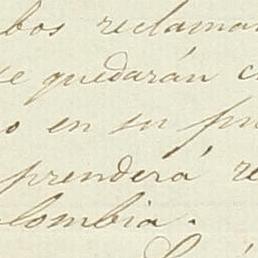 bos reclama
se quedarán c
o en su pu
prenderá re
olombia.